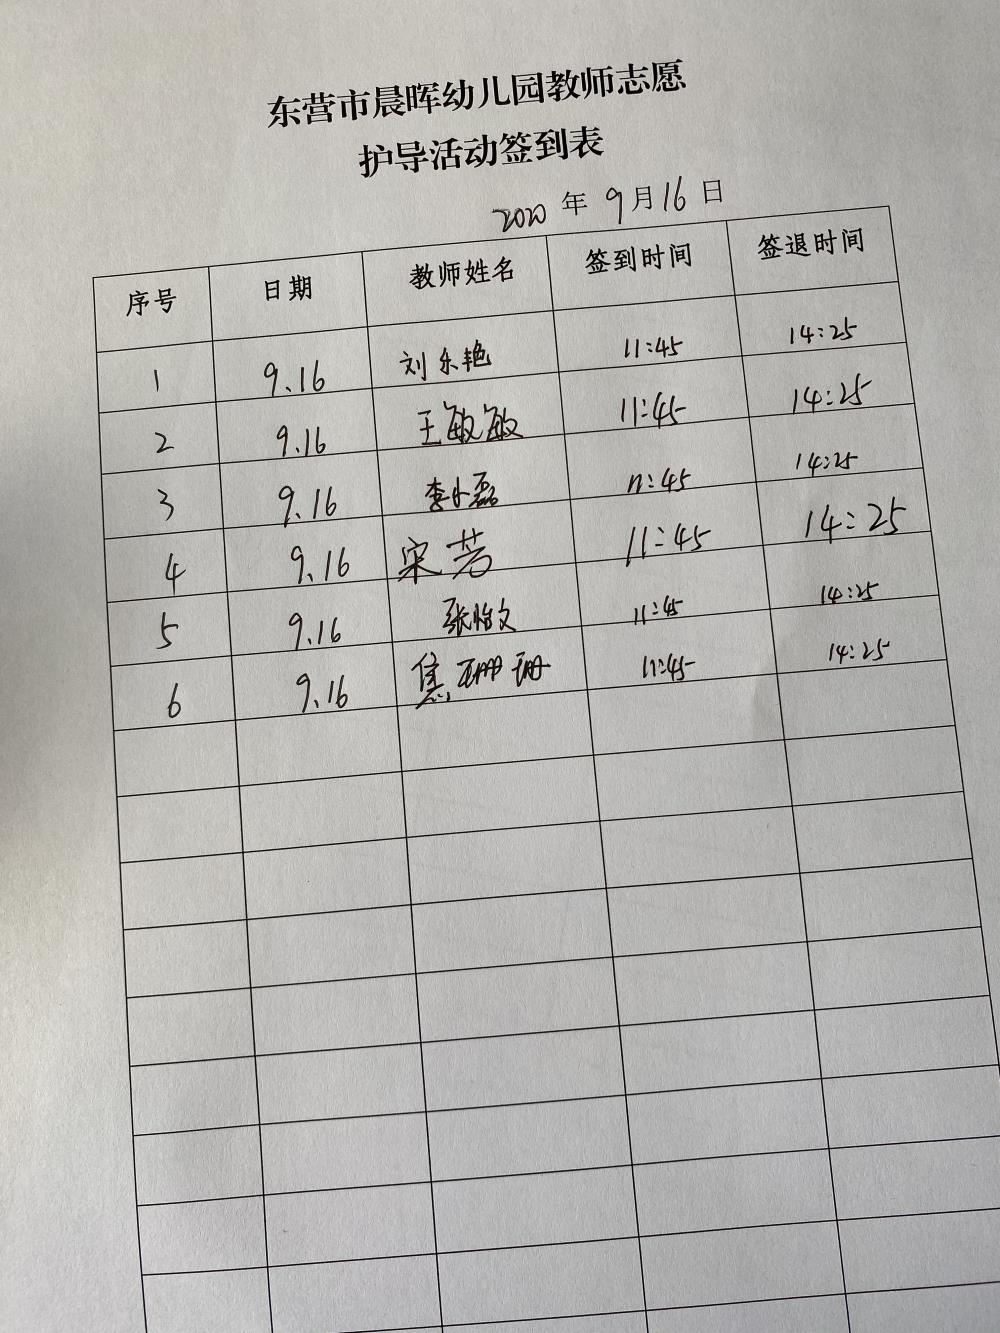 东营市晨晖幼儿园教师志愿
护导活动签到表
2020 年 9月16日
序号 日期 教师姓名 签到时间 签退时间
1 9.16 刘乐艳 11:45 14:25
2 9.16 王敏敏 11:45 14:25
3 9.16 李小磊 11:45 14:25
4 9.16 宋芳 11:45 14:25
5 9.16 张怡文 11:45 14:25
6 9.16 焦珊珊 11:45 14:25